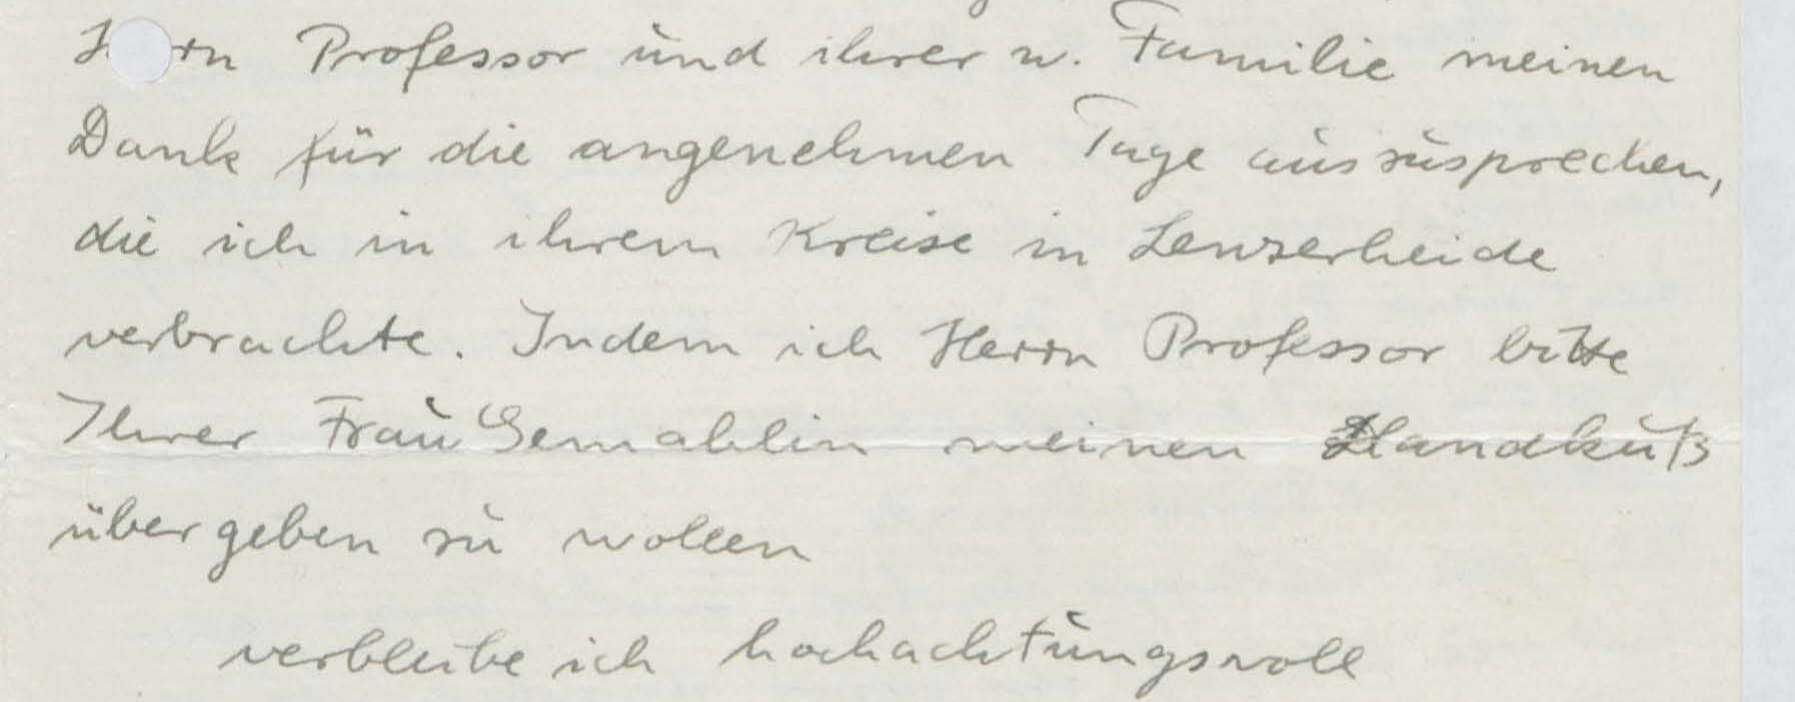 Herrn Professor und ihrer w. Familie meinen
Dank für die angenehmen Tage auszusprechen,
die ich in ihrem Kreise in Lenzerheide
verbrachte. Indem ich Herrn Professor bitte
Ihrer Frau Gemahlin meinen Handkuß
übergeben zu wollen
verbleibe ich hochachtungsvoll